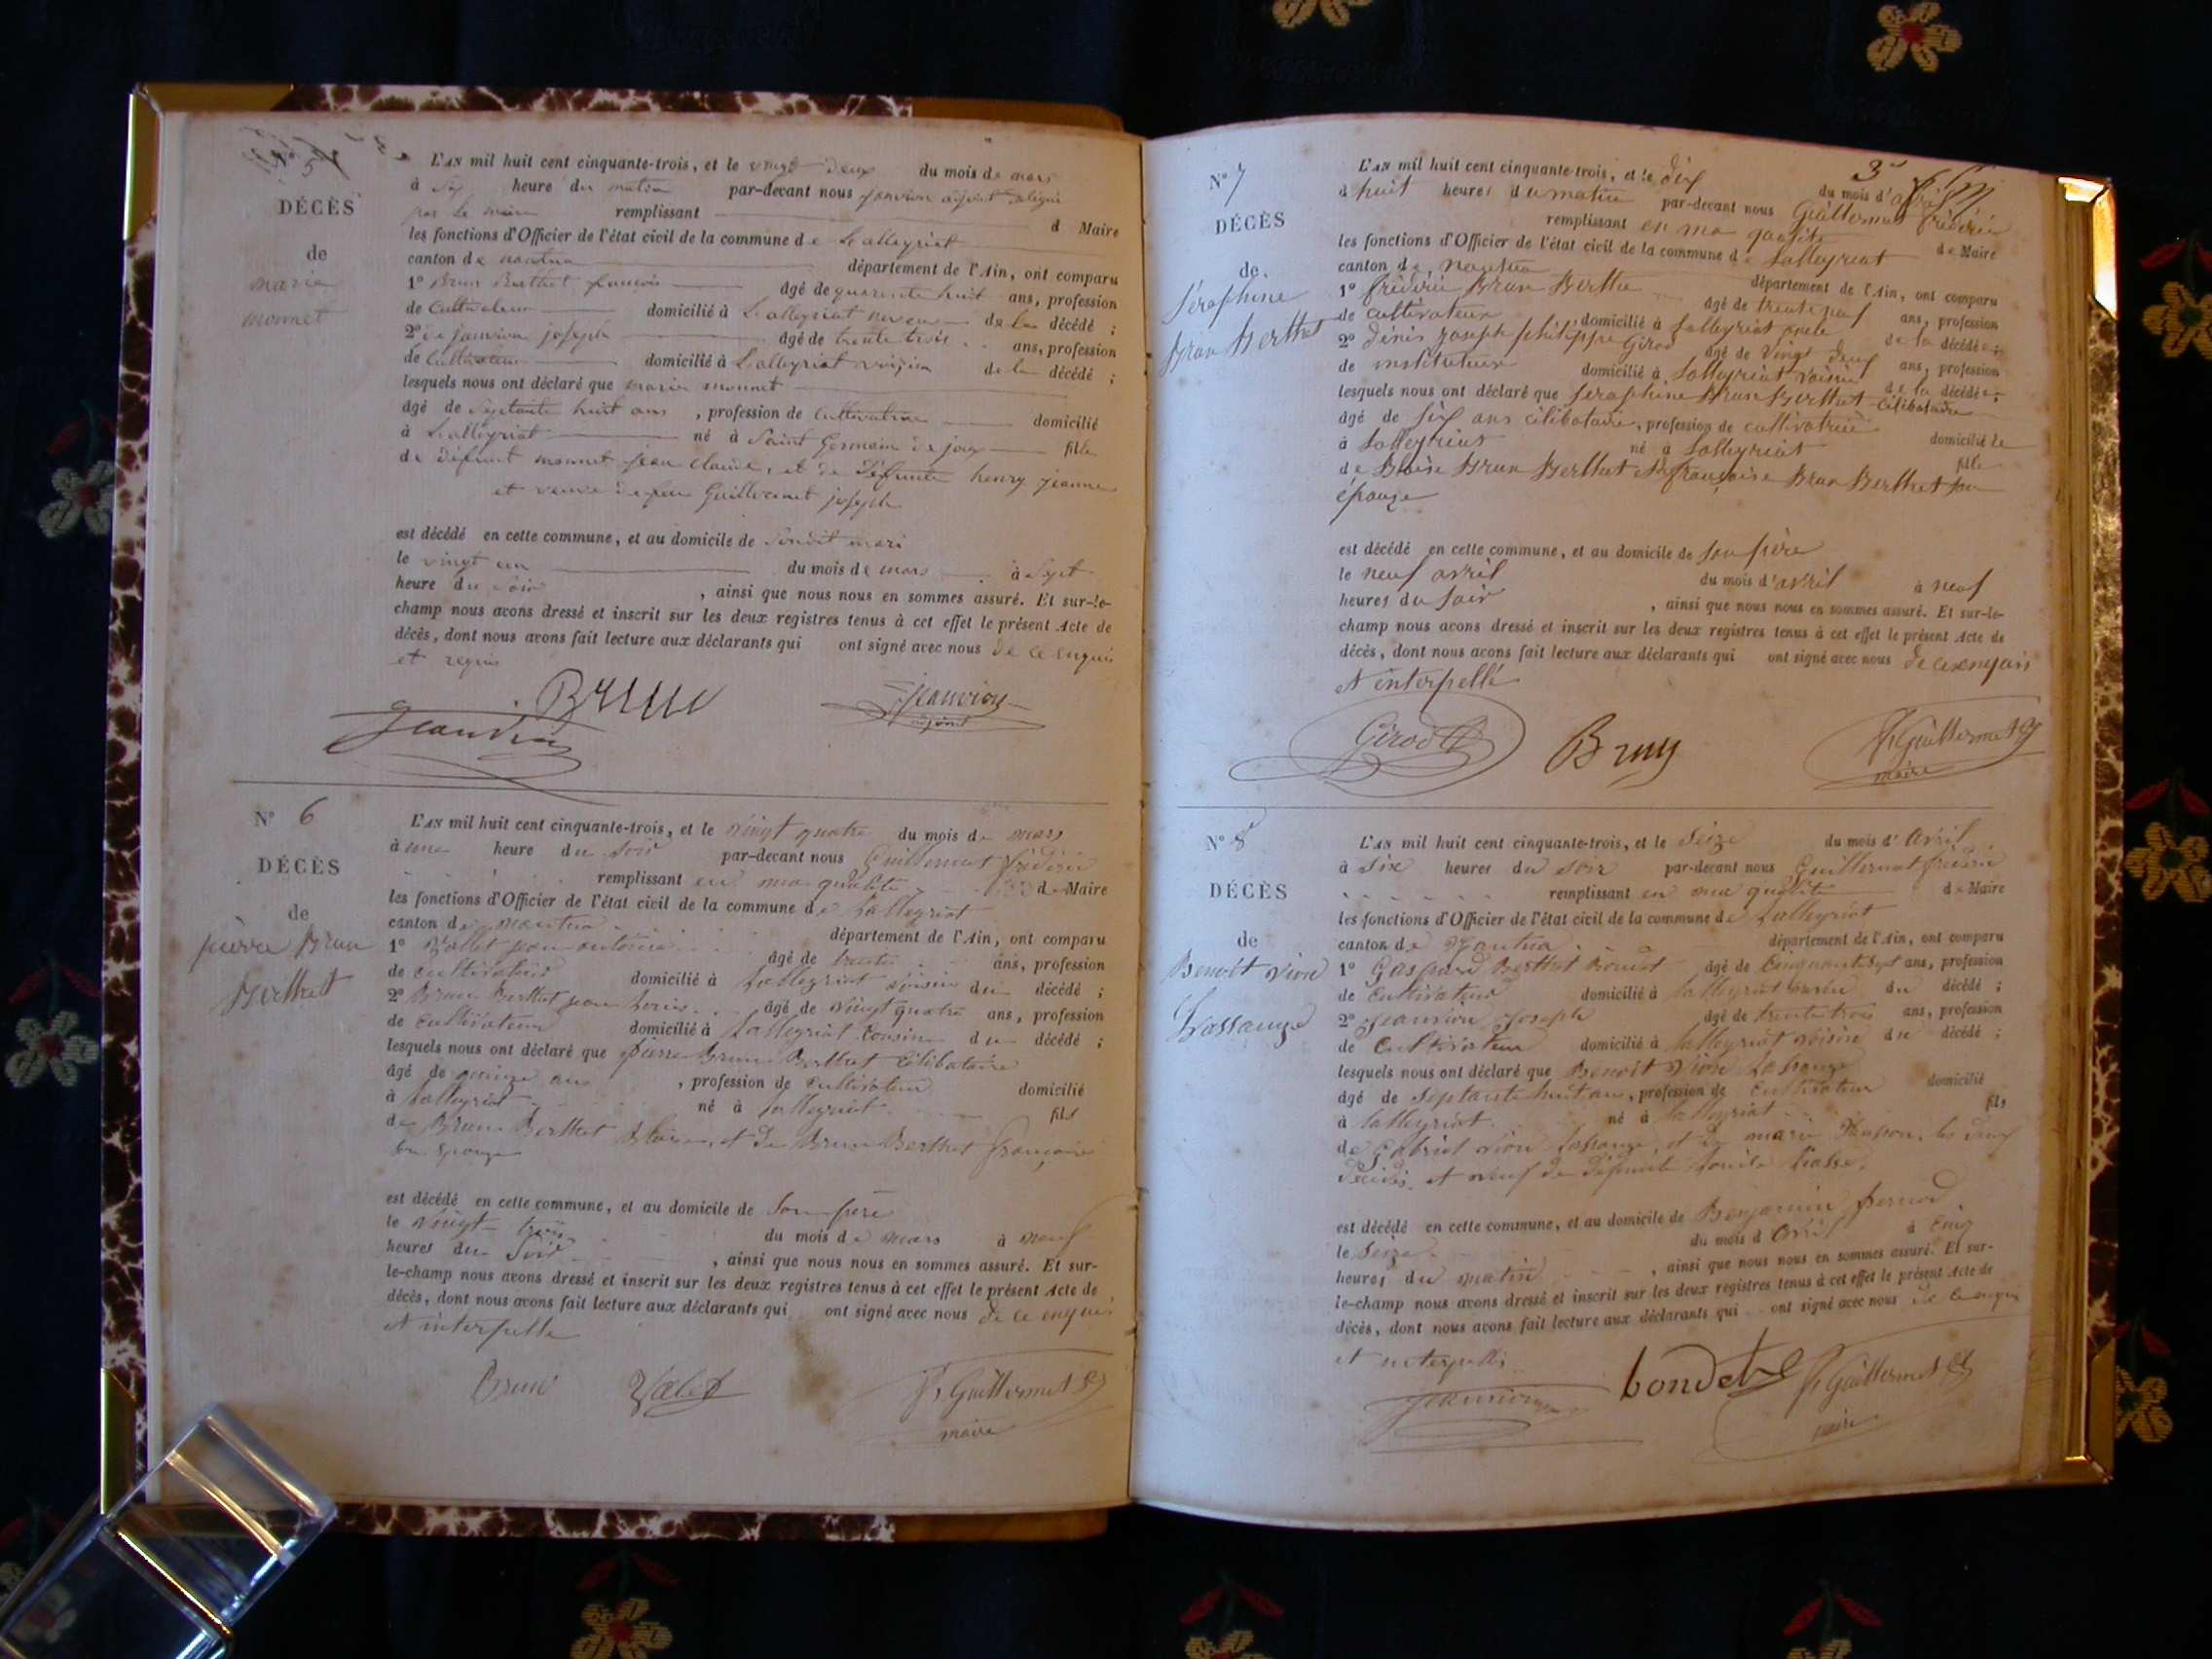 N° 5
DÉCÈS
de
marie
monnet
L'AN mil huit cent cinquante-trois, et le vingt deux du mois de mars
à six heure du matin par-devant nous janvion adjoint délégué
par le maire remplissant d Maire
les fonctions d'Officier de l'état civil de la commune de Lalleyriat
canton de nantua département de l'Ain, ont comparu
1° Brun Berthet françois âgé de quarante huit ans, profession
de Cultivateur domicilié à Lalleyriat neveu de la décédé ;
2° joseph âgé de trente trois ans, profession
de Cultivateur domicilié à Lalleyriat voisin de la décédé ;
lesquels nous ont déclaré que marie monnet
âgé de Septante huit ans, profession de Cultivatrice domicilié
à Lalleyriat né à Saint Germain de joux fille
de défunt monnet jean claude, et de défunte henry jeanne
et veuve de feu Guillermet joseph
est décédé en cette commune, et au domicile de Sondit mari
le vingt un du mois de mars à Sept
heure du soir, ainsi que nous nous en sommes assuré. Et sur-le-
champ nous avons dressé et inscrit sur les deux registres tenus à cet effet le présent Acte de
décès, dont nous avons fait lecture aux déclarants qui ont signé avec nous de ce enquis
et requis
Brun
adjoint
N° 6
DÉCÈS
de
pierre Brun
Berthet
L'AN mil huit cent cinquante-trois, et le vingt quatre du mois de mars
à une heure du soir par-devant nous Guillermet frédéric
remplissant en ma qualité de Maire
les fonctions d'Officier de l'état civil de la commune de Lalleyriat
canton de nantua département de l'Ain, ont comparu
1° jean antoine âgé de trente ans, profession
de cultivateur domicilié à Lalleyriat voisin du décédé ;
2° Brun Berthet jean Louis âgé de vingt quatre ans, profession
de cultivateur domicilié à Lalleyriat Cousin du décédé ;
lesquels nous ont déclaré que pierre Brun Berthet Célibataire
âgé de quinze ans, profession de cultivateur domicilié
à Lalleyriat né à Lalleyriat fils
de Brun Berthet Blaise, et de Brun Berthet françoise
son épouse
est décédé en cette commune, et au domicile de Son père
le vingt trois du mois de mars à neuf
heures du Soir, ainsi que nous nous en sommes assuré. Et sur-
le-champ nous avons dressé et inscrit sur les deux registres tenus à cet effet le présent Acte de
décès, dont nous avons fait lecture aux déclarants qui ont signé avec nous de ce enquis
et interpellé
Brun
Fc Guillermet
maire
3
N° 7
DÉCÈS
de
Séraphine
Brun Berthet
L'AN mil huit cent cinquante-trois, et le dix du mois d'avril
à huit heures du matin par-devant nous Guillermet frédéric
remplissant en ma qualité de Maire
les fonctions d'Officier de l'état civil de la commune de Lalleyriat
canton de nantua département de l'Ain, ont comparu
1° frédéric Brun Berthet âgé de trente neuf ans, profession
de cultivateur domicilié à Lalleyriat oncle de la décédée ;
2° Dénis joseph philippe Girod âgé de Vingt deux ans, profession
de instituteur domicilié à Lalleyriat voisin de la décédée ;
lesquels nous ont déclaré que Séraphine Brun Berthet Célibataire
âgé de six ans célibataire, profession de cultivatrice domicilié
à Lalleyriat né à Lalleyriat fille
de Blaise Brun Berthet françoise Brun Berthet son
épouse
est décédé en cette commune, et au domicile de son père
le neuf avril du mois d'avril à neuf
heures du soir, ainsi que nous nous en sommes assuré. Et sur-le-
champ nous avons dressé et inscrit sur les deux registres tenus à cet effet le présent Acte de
décès, dont nous avons fait lecture aux déclarants qui ont signé avec nous de ce enquis
et interpellé
Girod
Brun
Fc Guillermet
maire
N° 8
DÉCÈS
de
Benoît vion
Lassauge
L'AN mil huit cent cinquante-trois, et le Seize du mois d'avril
à six heures du soir par-devant nous Guillermet frédéric
remplissant en ma qualité de Maire
les fonctions d'Officier de l'état civil de la commune de Lalleyriat
canton de Nantua département de l'Ain, ont comparu
1° Gaspard Berthet Bondet âgé de Cinquante sept ans, profession
de Cultivateur domicilié à Lalleyriat du décédé ;
2° Jeanvion Joseph âgé de trente trois ans, profession
de Cultivateur domicilié à Lalleyriat voisin du décédé ;
lesquels nous ont déclaré que Benoît vion Lassauge
âgé de Septante huit ans, profession de Cultivateur domicilié
à Lalleyriat né à Lalleyriat fils
de Gabriel vion Lassauge, et de marie les deux
décédés, et veuf de défunte
est décédé en cette commune, et au domicile de Benjamin
le Seize du mois d'avril à cinq
heures du matin, ainsi que nous nous en sommes assuré. Et sur-
le-champ nous avons dressé et inscrit sur les deux registres tenus à cet effet le présent Acte de
décès, dont nous avons fait lecture aux déclarants qui ont signé avec nous de ce enquis
et interpellés
Jeanvion
bondet
Fc Guillermet
maire